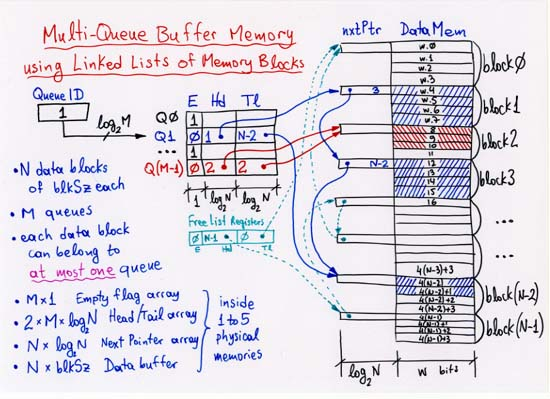 Multi-Queue Buffer Memory
using Linked Lists of Memory Blocks
Queue ID
1
log₂M
E Hd Tl
Q0
Q1 0 1 N-2
Q(M-1) 0 2 2
1 log₂N log₂N
Free List Registers
0 N-1 0
E Hd Tl
• N data blocks
of blkSz each
• M queues
• each data block
can belong to
at most one queue
• M×1 Empty flag array
• 2×M×log₂N Head/Tail array
• N×log₂N Next Pointer array
• N×blkSz Data buffer
inside
1 to 5
physical
memories
nxtPtr DataMem
w.0
w.1
w.2
w.3
block0
3
w.4
w.5
w.6
w.7
block1
8
9
10
11
block2
N-2
12
13
14
15
block3
16
...
...
4(N-3)+3
4(N-2)
4(N-2)+1
4(N-2)+2
4(N-2)+3
block(N-2)
4(N-1)
4(N-1)+1
4(N-1)+2
4(N-1)+3
block(N-1)
log₂N w bits